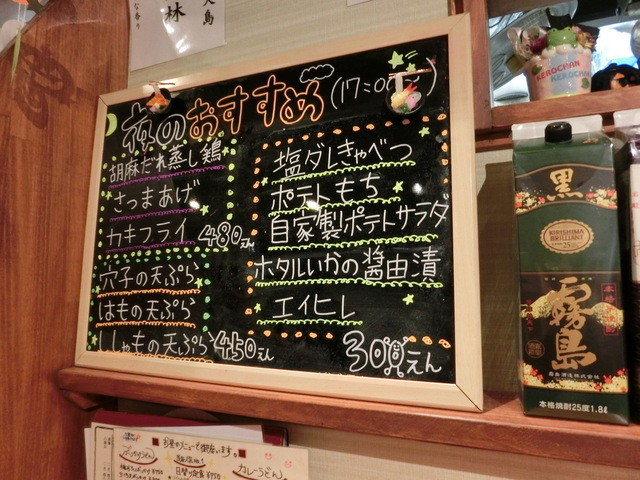 夜のおすすめ (17:00〜)
胡麻だれ蒸し鶏
さつまあげ
カキフライ 480えん
穴子の天ぷら
はもの天ぷら
ししゃもの天ぷら 450えん
塩ダレきゃべつ
ポテトもち
自家製ポテトサラダ
ホタルいかの醤油漬
エイヒレ
300えん
林
KEROCHAN
KEROCHAN
黒
KIRISHIMA
BRILLIANT
本格焼酎
霧島
霧島酒造株式会社
本格焼酎25度1.8ℓ
カレーうどん